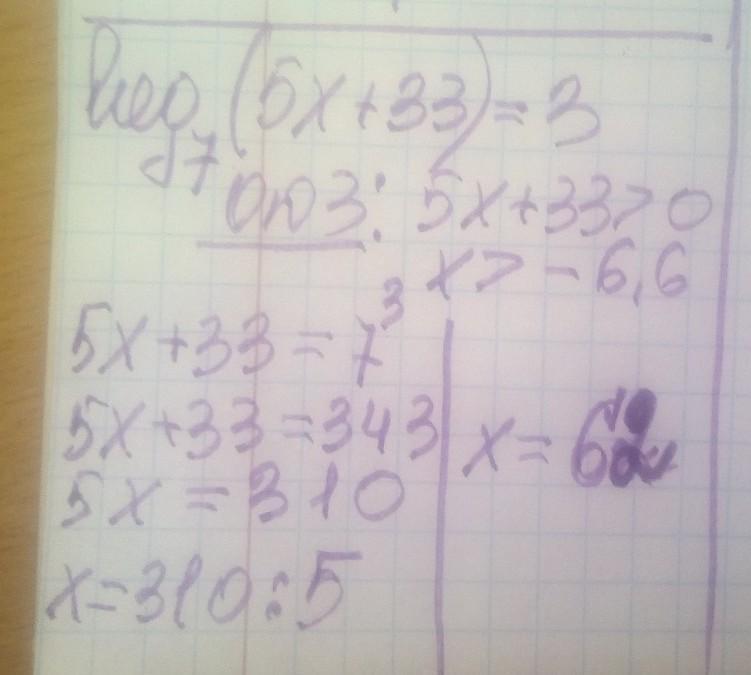 log₇(5x+33)=3
ОДЗ: 5x+33>0
x>-6,6
5x+33=7³
5x+33=343
5x=310
x=310:5
x=62